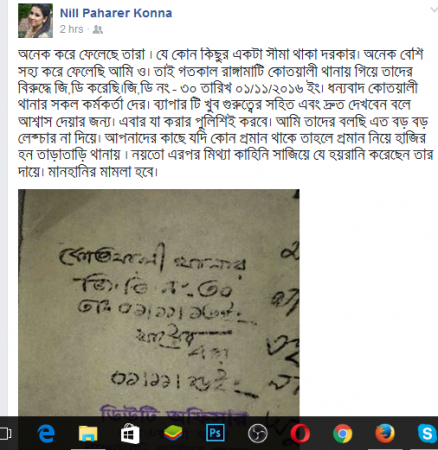 Nill Paharer Konna
2 hrs ·
অনেক করে ফেলেছে তারা । যে কোন কিছুর একটা সীমা থাকা দরকার। অনেক বেশি
সহ্য করে ফেলেছি আমি ও। তাই গতকাল রাঙ্গামাটি কোতয়ালী থানায় গিয়ে তাদের
বিরুদ্ধে জি,ডি করেছি।জি,ডি নং - ৩০ তারিখ ০১/১১/২০১৬ ইং। ধন্যবাদ কোতয়ালী
থানার সকল কর্মকর্তা দের। ব্যাপার টি খুব গুরুত্বের সহিত এবং দ্রুত দেখবেন বলে
আশ্বাস দেয়ার জন্য। এবার যা করার পুলিশই করবে। আমি তাদের বলছি এত বড় বড়
লেশ্চার না দিয়ে। আপনাদের কাছে যদি কোন প্রমান থাকে তাহলে প্রমান নিয়ে হাজির
হন তাড়াতাড়ি থানায় । নয়তো এরপর মিথ্যা কাহিনি সাজিয়ে যে হয়রানি করেছেন তার
দায়ে। মানহানির মামলা হবে।
কোতয়ালী থানার
জি: ডি নং-৩০
তাং ০১/১১/১৬ইং
০১/১১/১৬ইং
ডিউটি অফিসার